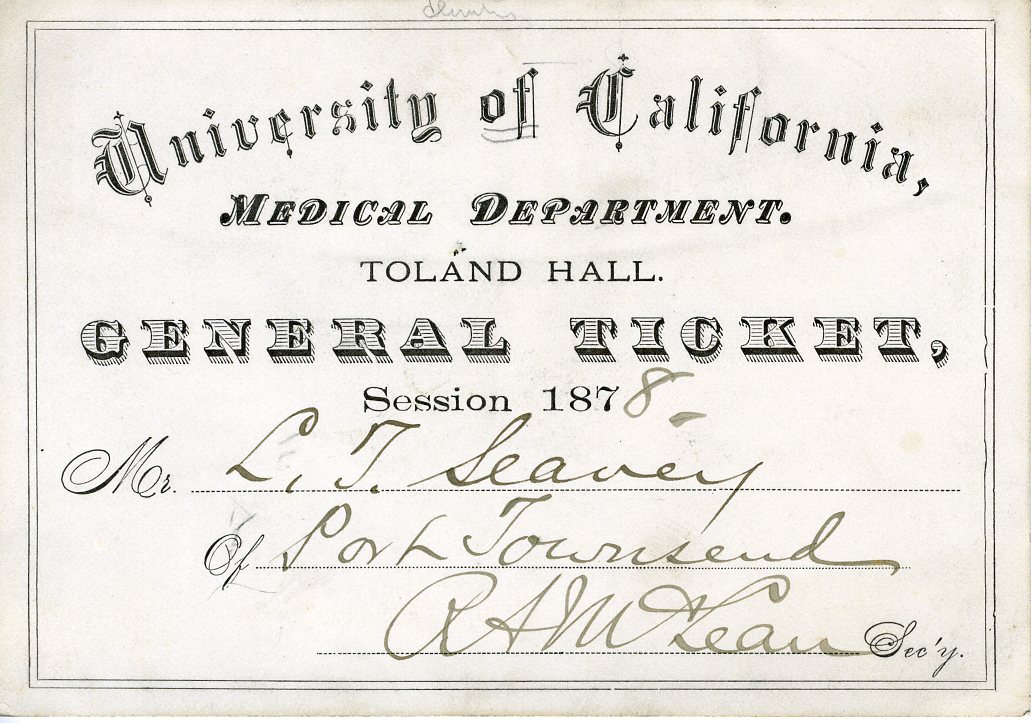 University of California,
MEDICAL DEPARTMENT.
TOLAND HALL.
GENERAL TICKET,
Session 1878-
Mr. L. T. Seavey
Of Port Townsend
R A McLean Sec'y.